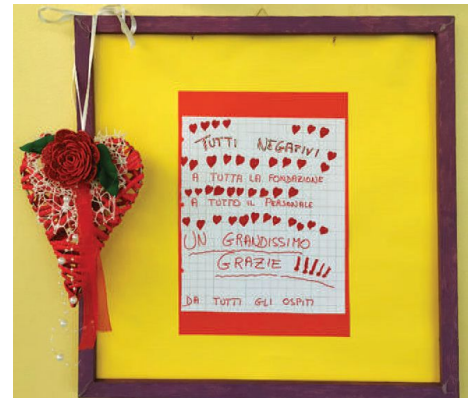 TUTTI NEGATIVI
A TUTTA LA FONDAZIONE
A TUTTO IL PERSONALE
UN GRANDISSIMO
GRAZIE !!!!!
DA TUTTI GLI OSPITI